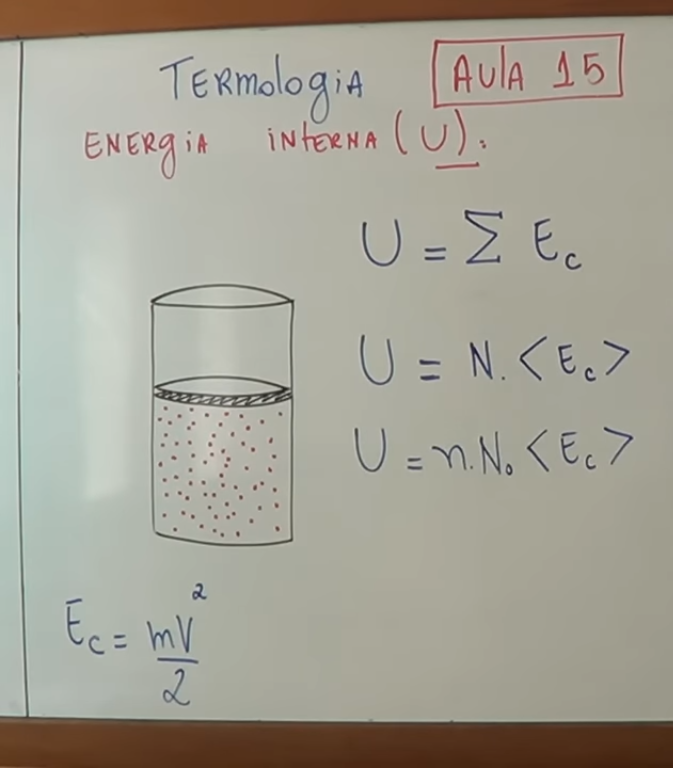 TERMOLOGIA AULA 15
ENERGIA INTERNA (U).
U = Σ E_c
U = N. <E_c>
U = n.N₀ <E_c>
E_c = mV²/2